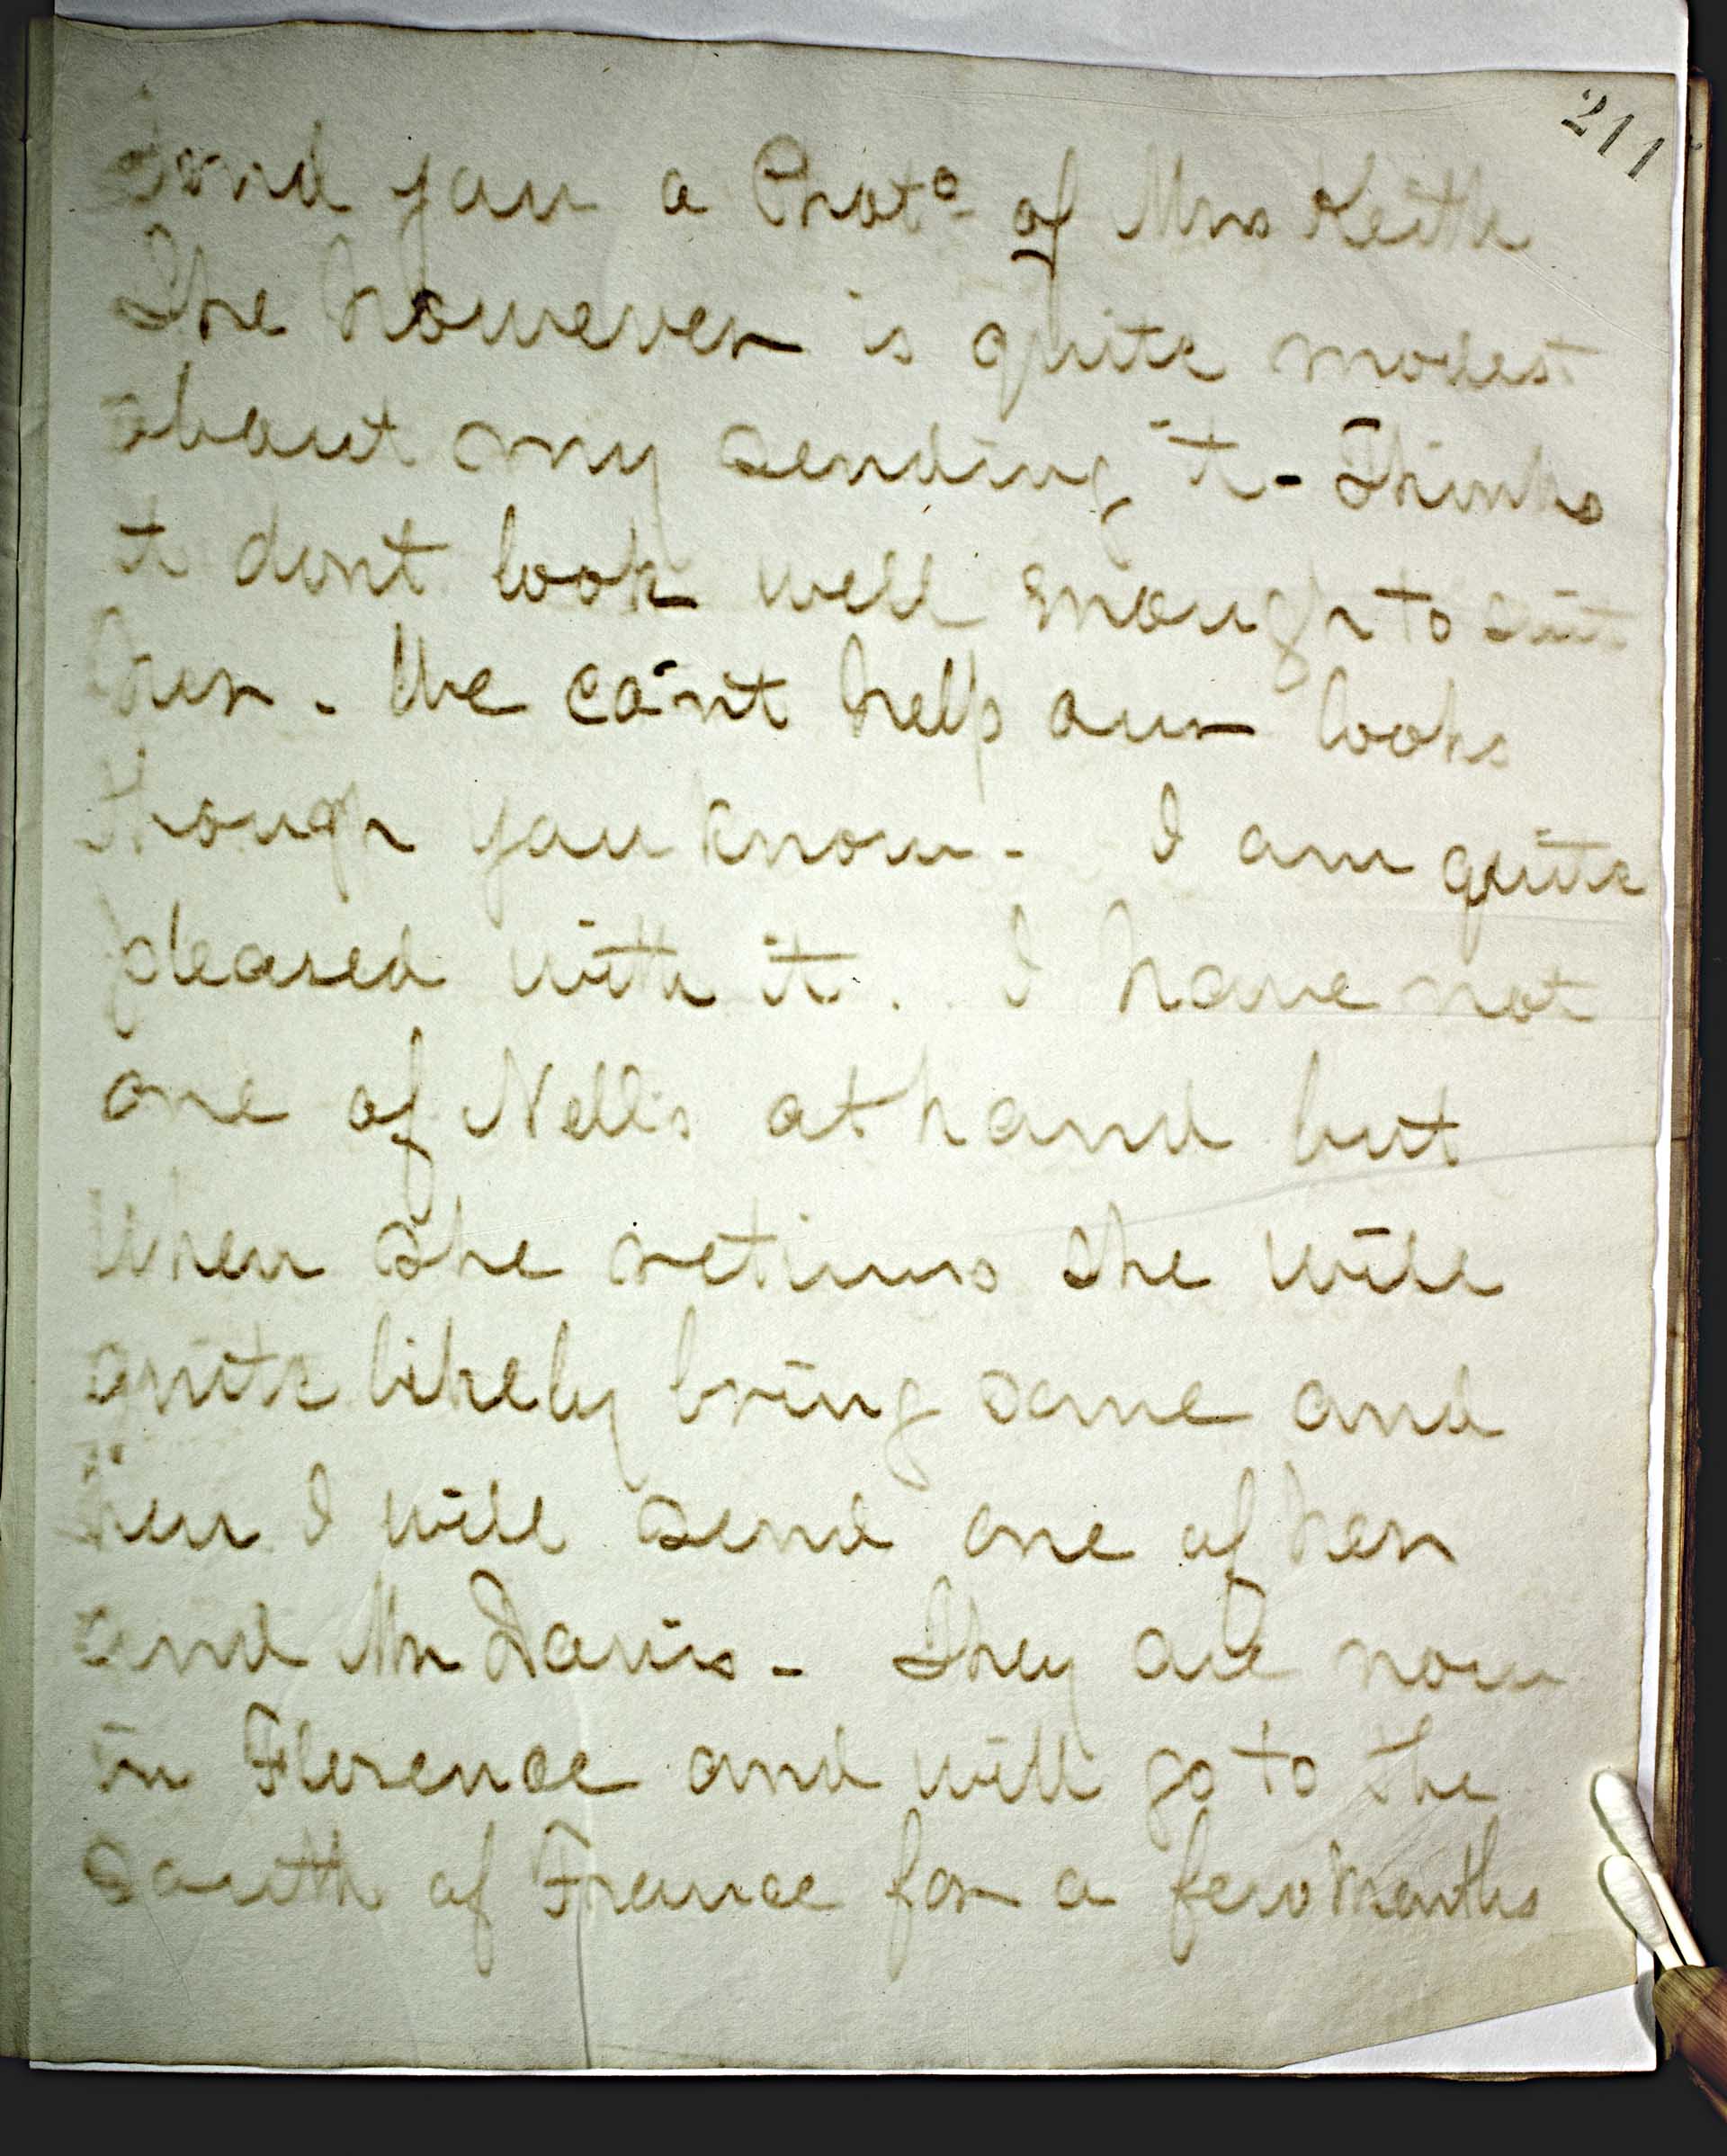 211
send you a Photo of Mrs Keith
She however is quite modest
about my sending it - Thinks
it dont look well enough to suit
her - We ca'nt help our looks
though you know - I am quite
pleased with it . I have not
one of Nells at hand but
when she returns she will
quite likely bring some and
then I will send one of her
and Mr Davis - They are now
in Florence and will go to the
South of France for a few months